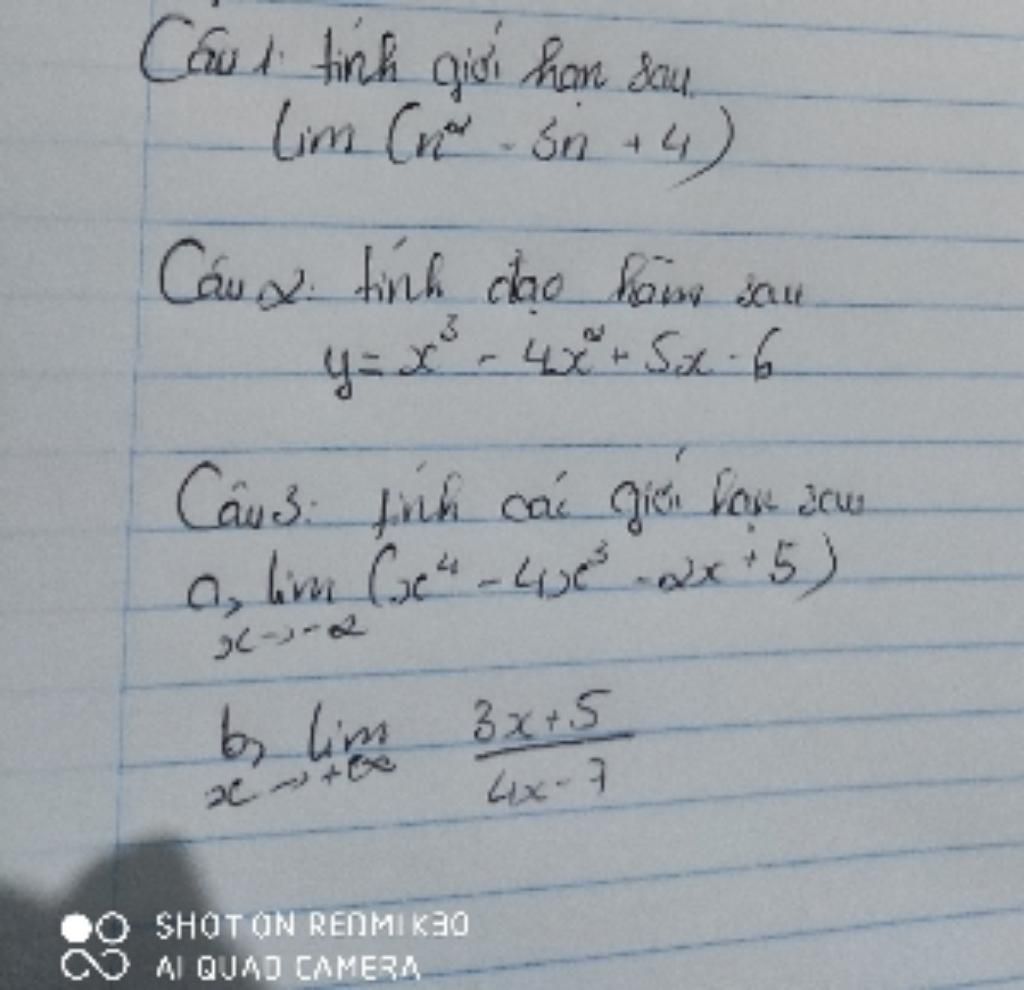 Câu 1: tính giới hạn sau
lim (n² - 3n + 4)
Câu 2: tính đạo hàm sau
y = x³ - 4x² + 5x - 6
Câu 3: tính các giới hạn sau
a, lim (x⁴ - 4x³ - 2x + 5)
x→-2
b, lim 3x+5
x→+∞ 4x-7
SHOT ON REDMI K30
AI QUAD CAMERA